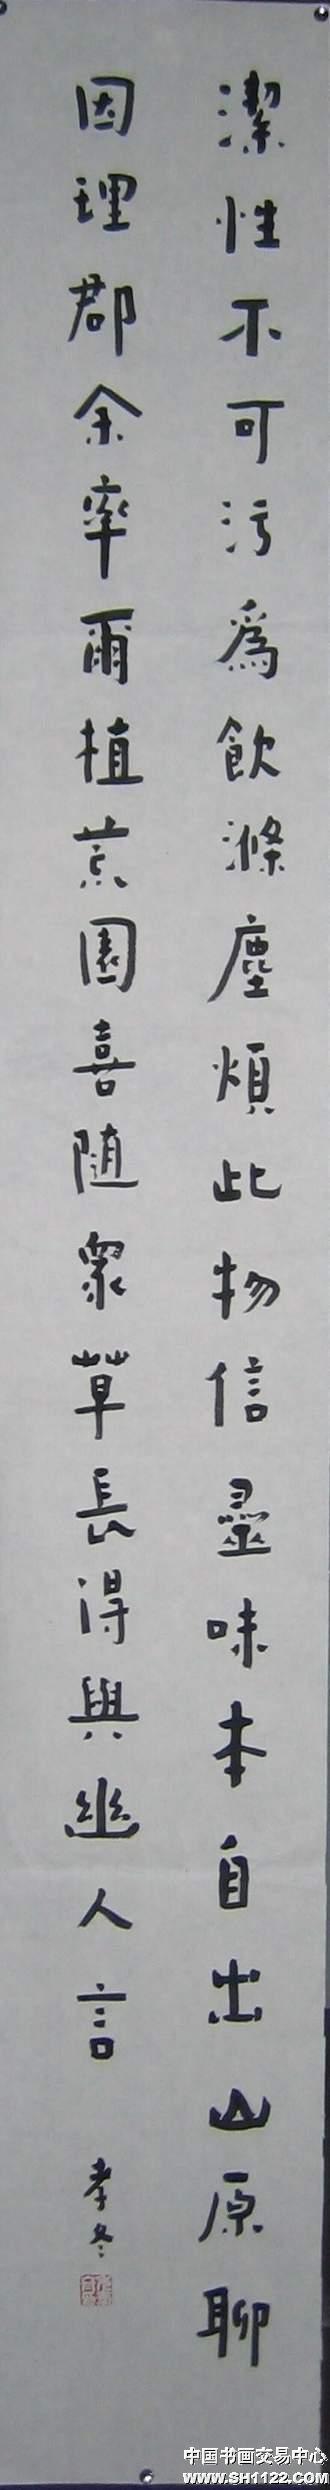 潔性不可污為飲滌塵煩此物信靈味本自出山原聊
因理郡余率爾植荒園喜隨眾草長得與幽人言
孝冬
中国书画交易中心
www.SH1122.com